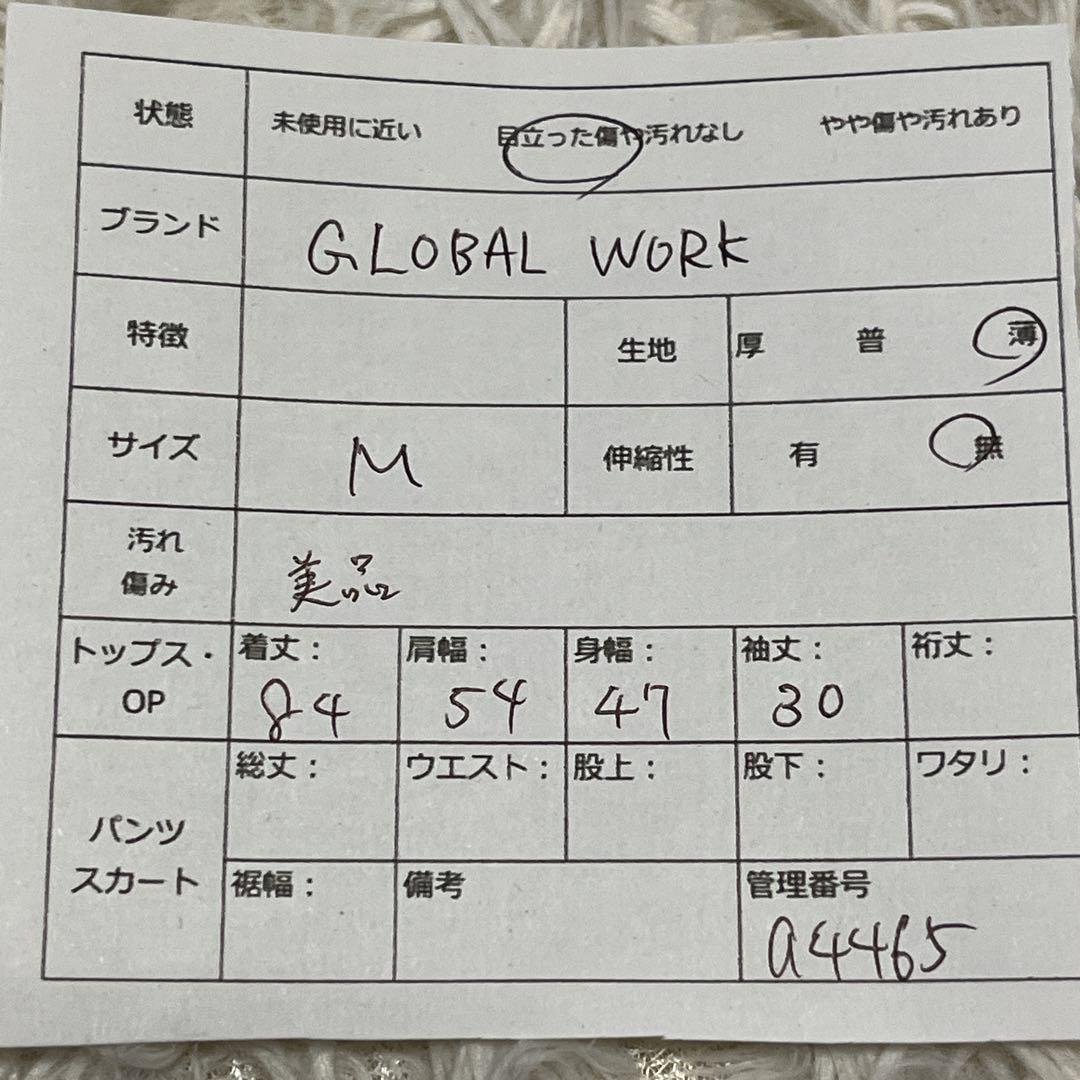 状態 未使用に近い 目立った傷や汚れなし やや傷や汚れあり
ブランド GLOBAL WORK
特徴 生地 厚 普 薄
サイズ M 伸縮性 有 無
汚れ
傷み 美品
トップス・
OP
着丈: 肩幅: 身幅: 袖丈: 裄丈:
84 54 47 30
パンツ
スカート
総丈: ウエスト: 股上: 股下: ワタリ:
裾幅: 備考 管理番号
a4465